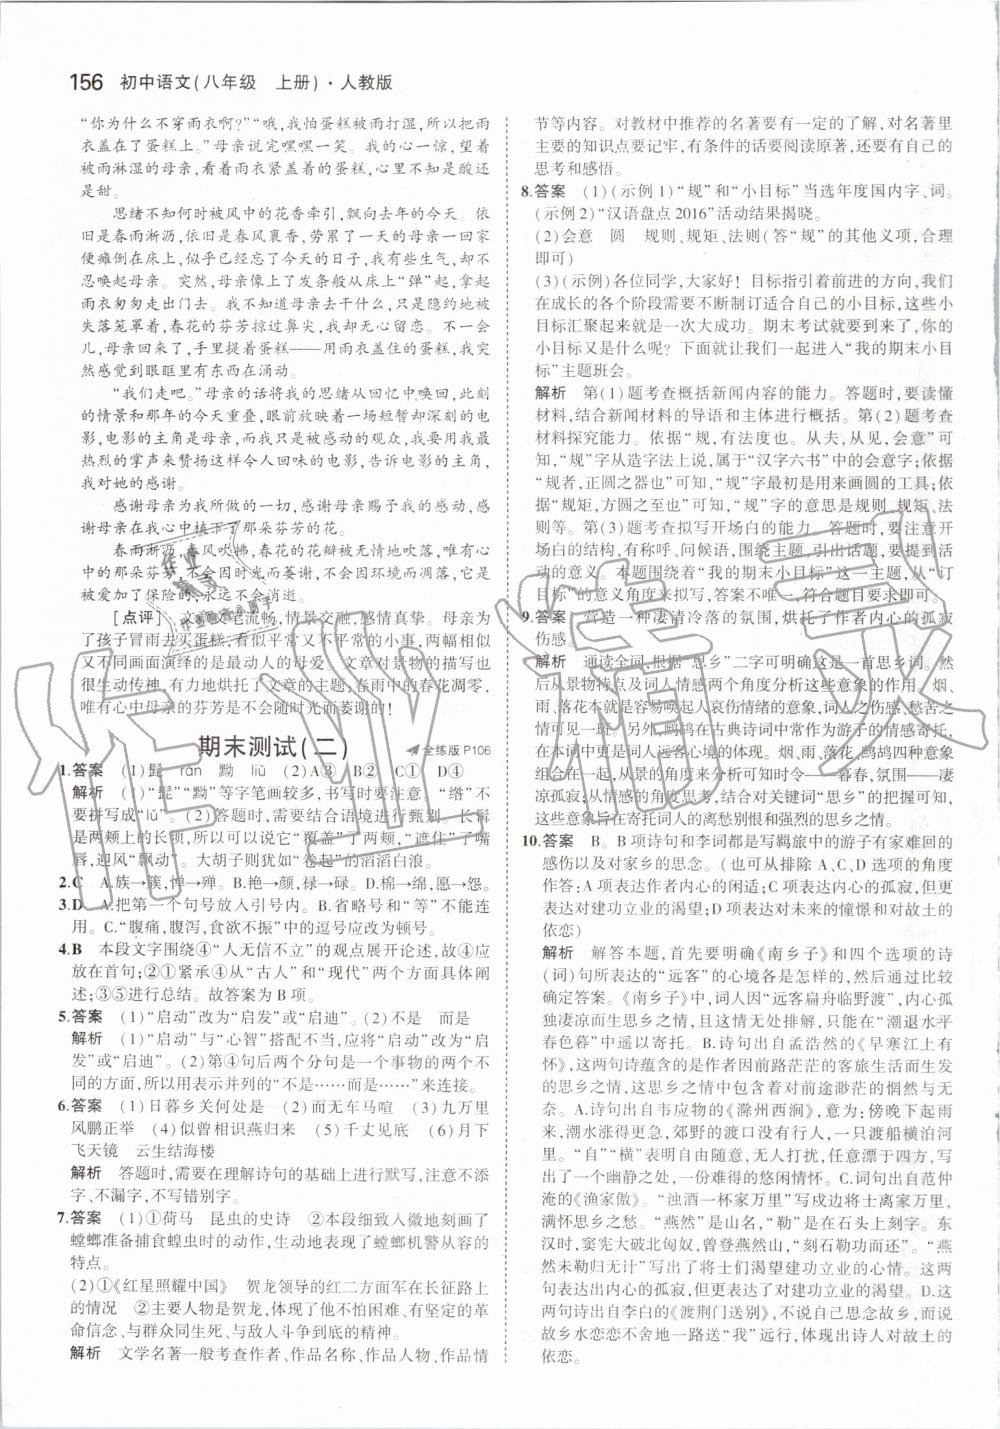 156 初中语文(八年级 上册)·人教版
“你为什么不穿雨衣啊?”“哦,我怕蛋糕被雨打湿,所以把雨
衣盖在了蛋糕上。”母亲说完嘿嘿一笑。我的心一惊,望着
被雨淋湿的母亲,看着雨衣紧盖着的蛋糕,心里不知是苦还
是甜。
思绪不知何时被风中的花香牵引,飘向去年的今天。依
旧是春雨淅沥,依旧是春风裹香,劳累了一天的母亲一回家
便瘫倒在床上,似乎已经忘了今天的日子,我有些生气,却也
不忍唤起母亲。突然,母亲像上了发条似的从床上“弹”起,拿起
雨衣匆匆走出门去。我不知道母亲去干什么,只是隐约地被
失落笼罩着,春花的芬芳掠过鼻尖,我却无心留恋。不一会
儿,母亲回来了,手里提着蛋糕——用雨衣盖住的蛋糕,我突
然感觉到心里有东西在涌动。
“我们走吧。”母亲的话将我的思绪从回忆中唤回,此刻
的情景和那年的今天重叠,眼前放映着一场短暂却深刻的电
影,电影的主角是母亲,而我只是被感动的观众,我要用我最
热烈的掌声来赞扬这样令人回味的电影,告诉电影的主角,
我对她的感谢。
感谢母亲为我所做的一切,感谢母亲赐予我的感动,感
谢母亲在我心中植下了那朵芬芳的花。
春雨淅沥,春风吹拂,春花的花瓣被无情地打落,唯有心
中的那朵芬芳,不会因时光而萎谢,不会因环境而凋落,它已
被爱加了保险的,永远不会消逝。
[点评] 文章文笔流畅,情景交融,感情真挚。母亲为
了孩子冒雨去买蛋糕,看似平常又不平常的小事,两幅相似
又不同画面演绎的是最动人的母爱。文章对景物的描写也
很生动传神,有力地烘托了文章的主题,春雨中的春花凋零,
唯有心中母亲的芬芳是不会随时光而萎谢的!
期末测试(二) 全练版 P106
1.答案 (1)髭 rán 黝 liǔ (2)A③ B② C① D④
解析 (1)“髭”“黝”等字笔画较多,书写时要注意。“绺”不
要拼写成“lǚ”。(2)答题时,需要结合语境进行甄别。长髯
是两大片的长须,所以可以说它“覆盖”了两颊,“遮住”了嘴
唇,迎风“飘动”。大胡子则犹如“卷起”的滔滔白浪。
2.C A.族→簇,惮→殚。B.艳→颜,禄→碌。D.棉→绵,劳→怨。
3.D A.把第一个句号放入引号内。B.省略号和“等”不能连
用。C.“腹痛,腹泻,食欲不振”中的逗号应改为顿号。
4.B 本段文字围绕④“人无信不立”的观点展开论述,故④应
放在首句;②①紧承④从“古人”和“现代”两个方面具体阐
述;③⑤进行总结。故答案为B项。
5.答案 (1)“启动”改为“启发”或“启迪”。(2)不是 而是
解析 (1)“启动”与“心智”搭配不当,应将“启动”改为“启
发”或“启迪”。(2)第④句后两个分句是一个事物的两个不
同的方面,所以用表示并列的“不是……而是……”来连接。
6.答案 (1)日暮乡关何处是 (2)而无车马喧 (3)九万里
风鹏正举 (4)似曾相识燕归来 (5)千丈见底 (6)月下
飞天镜 云生结海楼
解析 答题时,需要在理解诗句的基础上进行默写,注意不添
字、不漏字,不写错别字。
7.答案 (1)①荷马 昆虫的史诗 ②本段细致入微地刻画了
螳螂准备捕食蝗虫时的动作,生动地表现了螳螂机警从容的
特点。
(2)①《红星照耀中国》 贺龙领导的红二方面军在长征路上
的情况 ②主要人物是贺龙,体现了他不怕困难、有坚定的革
命信念、与群众同生死、与敌人斗争到底的精神。
解析 文学名著一般考查作者、作品名称、作品人物、作品情
节等内容。对教材中推荐的名著要有一定的了解,对名著里
主要的知识点要记牢,有条件的话要阅读原著,还要有自己的
思考和感悟。
8.答案 (1)(示例1)“规”和“小目标”当选年度国内字、词。
(示例2)“汉语盘点2016”活动结果揭晓。
(2)会意 圆 规则、规矩、法则(答“规”的其他义项,合理
即可)
(3)(示例)各位同学,大家好!目标指引着前进的方向,我们
在成长的各个阶段需要不断制订适合自己的小目标,这些小
目标汇聚起来就是一次大成功。期末考试就要到来了,你的
小目标又是什么呢?下面就让我们一起进入“我的期末小目
标”主题班会。
解析 第(1)题考查概括新闻内容的能力。答题时,要读懂
材料,结合新闻材料的导语和主体进行概括。第(2)题考查
材料探究能力。依据“规,有法度也。从夫,从见,会意”可
知,“规”字从造字法上说,属于“汉字六书”中的会意字;依据
“规者,正圆之器也”可知,“规”字最初是用来画圆的工具;依
据“规矩,方圆之至也”可知,“规”字的意思是规则、规矩、法
则等。第(3)题考查拟写开场白的能力。答题时,要注意开
场白的结构,有称呼、问候语,围绕主题,引出话题,要注意
互动。本题围绕着“我的期末小目标”的主题班会,从“订
目标”的意义角度来拟写,答案不唯一,符合题目要求即可。
9.答案 营造一种凄清冷落的氛围,烘托了作者内心的孤寂
伤感。
解析 通读全词,根据“思乡”二字可明确这是一首思乡词。然
后从景物特点及词人情感两个角度分析这些意象的作用。烟、
雨、落花本就是容易唤起人哀愁情绪的意象,词人之伤感、愁苦之
情可见一斑。另外,鹧鸪在古典诗词中常作为游子的情感寄托,
在本词中更是词人远客心境的体现。烟、雨、落花、鹧鸪四种意象
组合在一起,从景的角度来分析可知时令——暮春,氛围——凄
凉孤寂;从情感的角度来分析,结合对关键词“思乡”的把握可知,
这些意象旨在寄托词人的离愁别恨和强烈的思乡之情。
10.答案 B。B项诗句和李词都是写羁旅中的游子有家难回的
伤感以及对家乡的思念。(也可从排除A、C、D选项的角度
作答:A项表达作者内心的闲适;C项表达内心的孤寂,但更
表达对建功立业的渴望;D项表达对未来的憧憬和对故土的
依恋)
解析 解答本题,首先要明确《南乡子》和四个选项的诗
(词)句所表达的“远客”的心境各是怎样的,然后通过比较
确定答案。《南乡子》写词人因“远客扁舟临野渡”,内心孤
独凄凉而生思乡之情,但这一情怀无处排解,只能在“潮退水平
春色暮”中遥以寄托。B.诗句出自孟浩然的《早寒江上有
怀》,这两句诗表达的是作者因前路茫茫的客旅生活而生发
的思乡之情,这思乡之情中甚至蕴含着前途渺茫的惘然与无
奈。A.诗句出自韦应物的《滁州西涧》,意为:傍晚下起雨
来,潮水涨得更急,郊野的渡口没有行人,一只渡船横泊河
里。“自”“横”表明自由随意,无所牵挂,漂泊不定于四方,写
出了一个幽静之处,一份难得的悠闲。C.词句出自范仲
淹的《渔家傲》。“浊酒一杯家万里”写戍边将士离家万里,
满怀思乡之愁。“燕然”是山名,“勒”是在石头上刻字。东
汉窦宪大破北匈奴,曾登燕然山,“刻石勒功而还”。“燕
然未勒归无计”写出了将士们渴望建功立业的心情。这两
句诗表达出来的情感有孤寂,但更有建功立业的渴望。D.这
两句诗出自李白的《渡荆门送别》,不说自己思念故乡,而说
故乡水恋恋不舍地一路送“我”远行,体现出诗人对故土的
依恋。